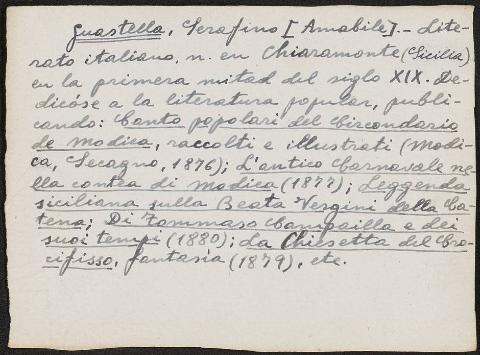 Guastella, Serafino [Amabile].- Lite-
rato italiano, n. en Chiaramonte (Sicilia)
en la primera mitad del siglo XIX. De-
dicóse a la literatura popular, publi-
cando: Canto popolari del Circondario
de Modica, raccolti e illustrati (Modi-
ca, Secagno, 1876); L'antico Carnavale ne-
lla contea di Modica (1877); Leggenda
siciliana sulla Beata Vergini della Ca-
tena; Di Tommaso Campailla e dei
suoi tempi (1880); La Chiesetta del Cro-
cifisso, fantasia (1879), etc.